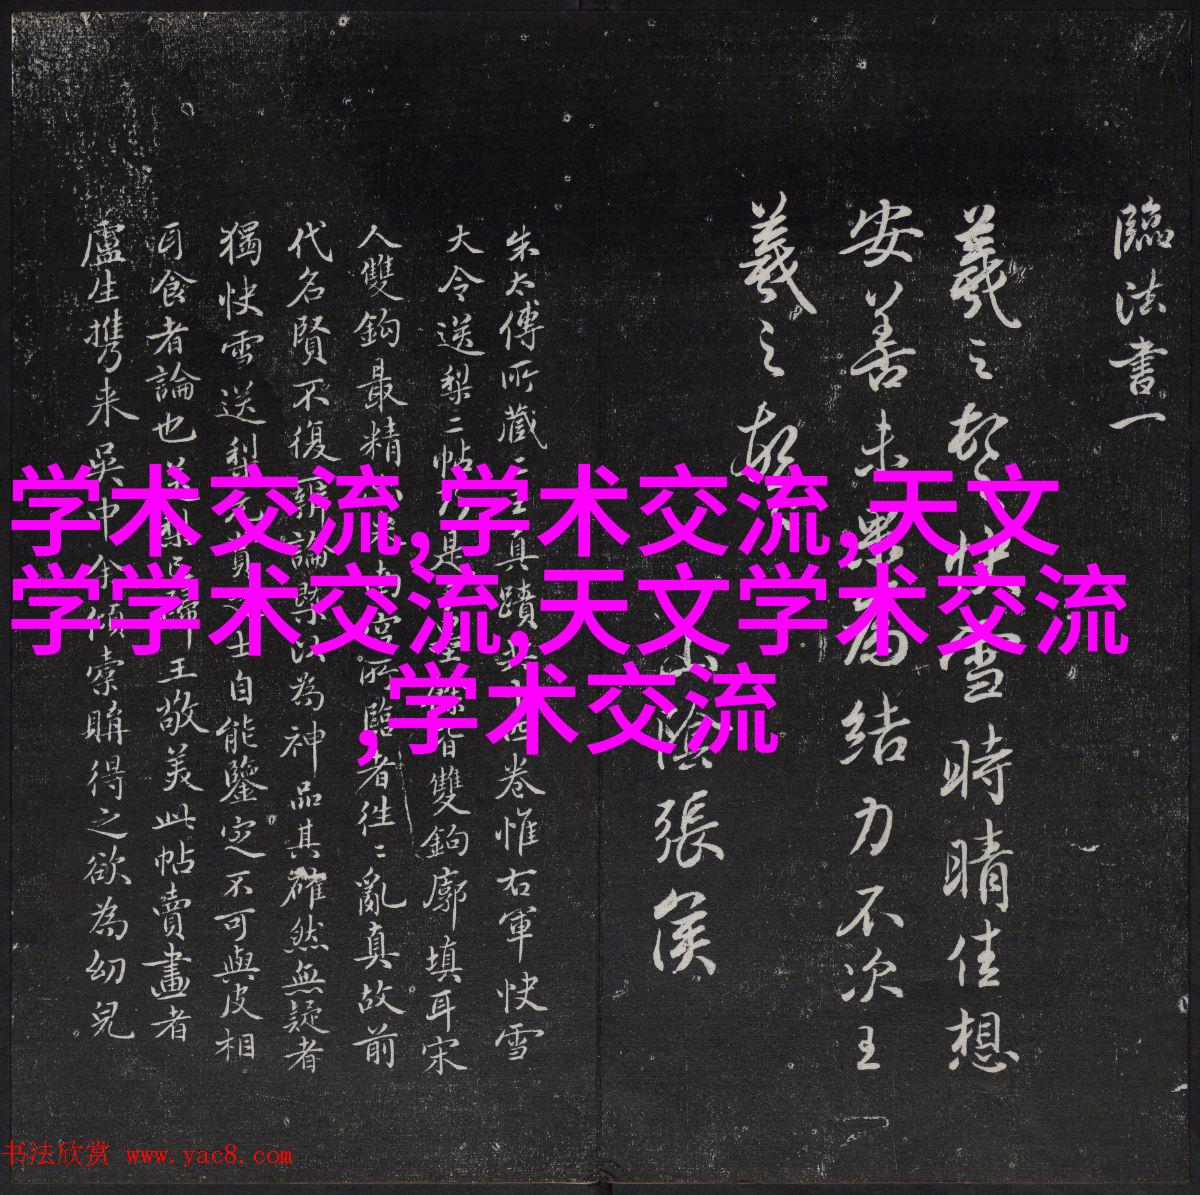 臨法書一
羲之頓首快雪時晴佳想
安善未果為結力不次王
羲之頓首
山陰張侯
朱太傅所藏二王真蹟共十四卷惟右軍快雪
大令送梨二帖乃是
雙鉤廓填耳宋
人雙鉤最精
所臨者往〻亂真故前
代名賢不復辯論槩以為神品其確然無疑者
獨快雪送梨
自能鑒定不可與皮相
耳食者論也
王敬美此帖賣畫者
盧生攜来吳中余傾橐購得之欲為幼兒
学术交流,学术交流,天文
学学术交流,天文学术交流
,学术交流
书法欣赏 www.yac8.com